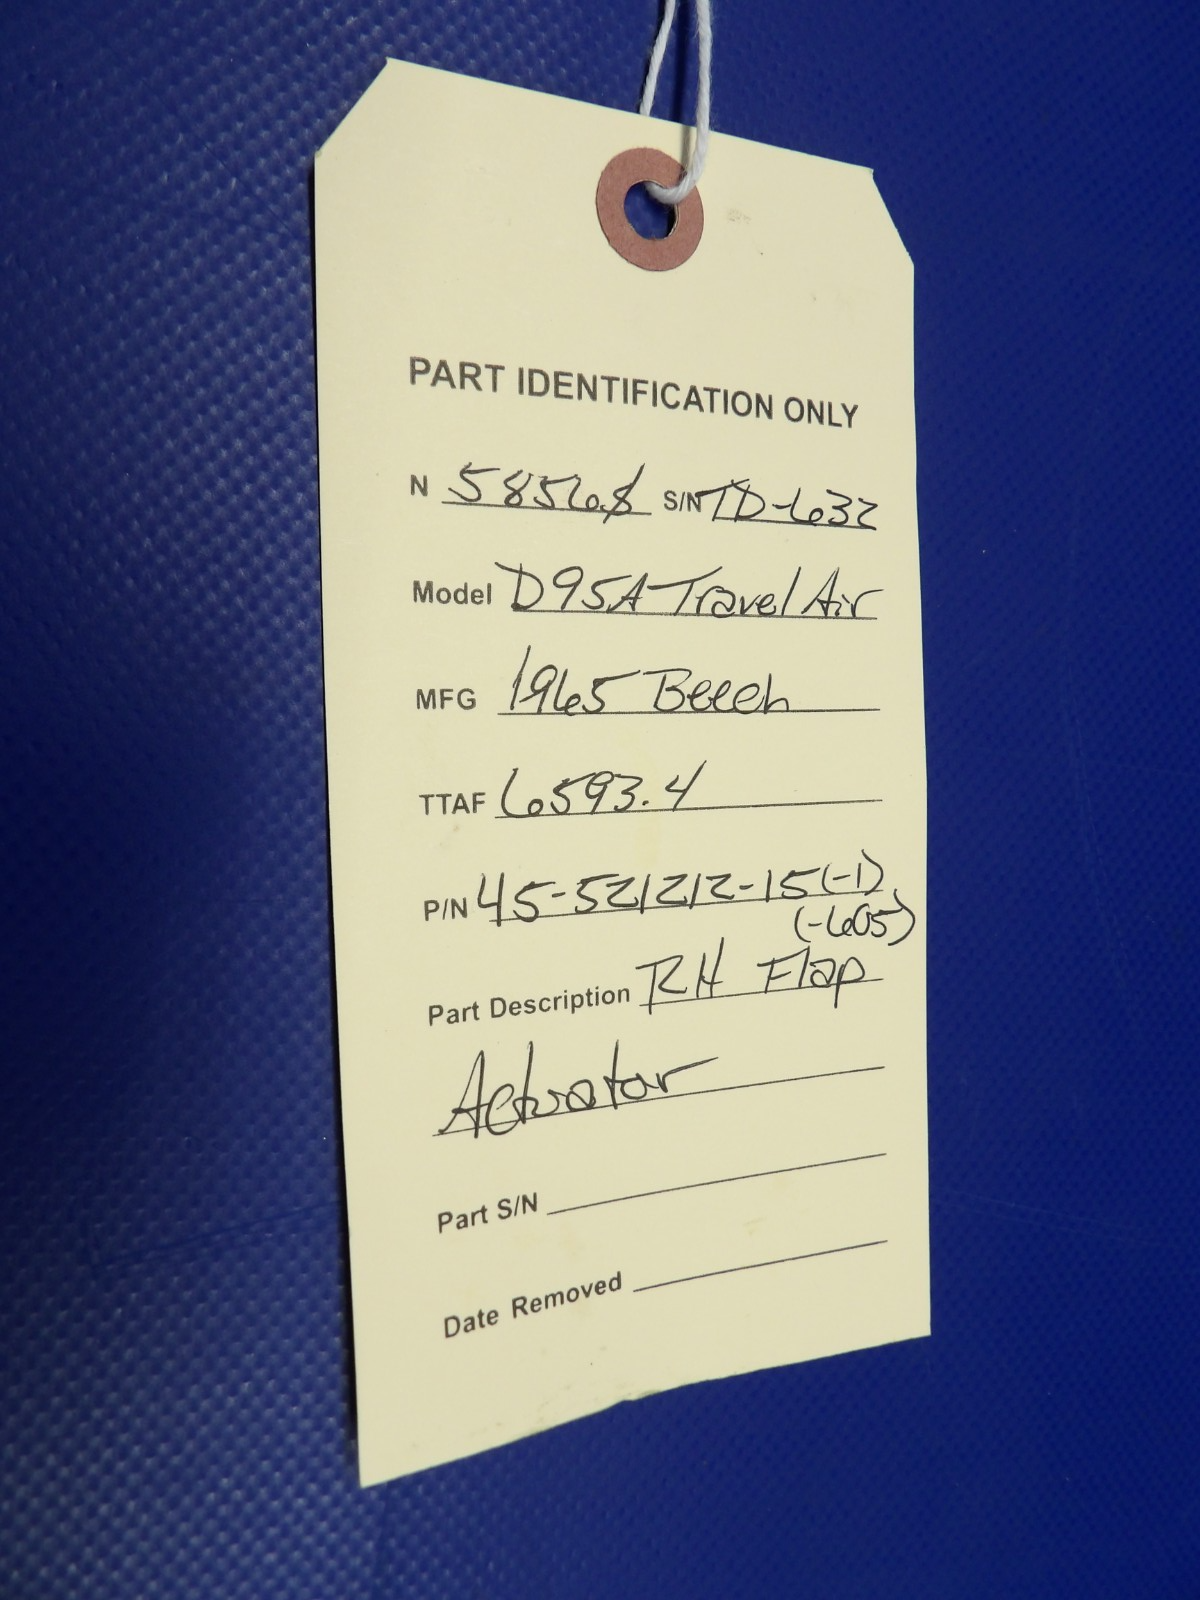 PART IDENTIFICATION ONLY
N 5856S S/N TD-632
Model D95A Travel Air
MFG 1965 Beech
TTAF 6593.4
P/N 45-521212-15(-1)
(-605)
Part Description RH Flap
Actuator
Part S/N
Date Removed